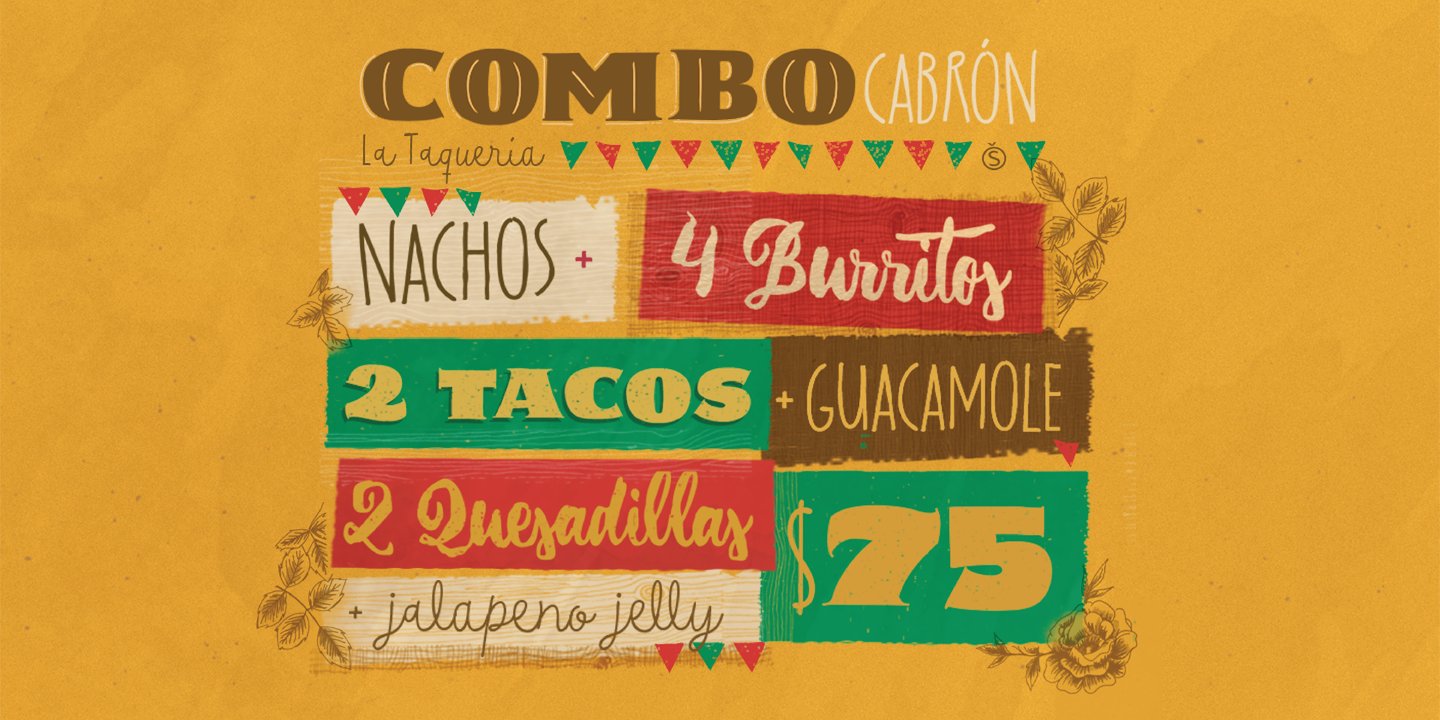 COMBO CABRÓN
La Taqueria
Š
NACHOS +
4 Burritos
2 TACOS
+ GUACAMOLE
2 Quesadillas
+ jalapeno jelly
$75